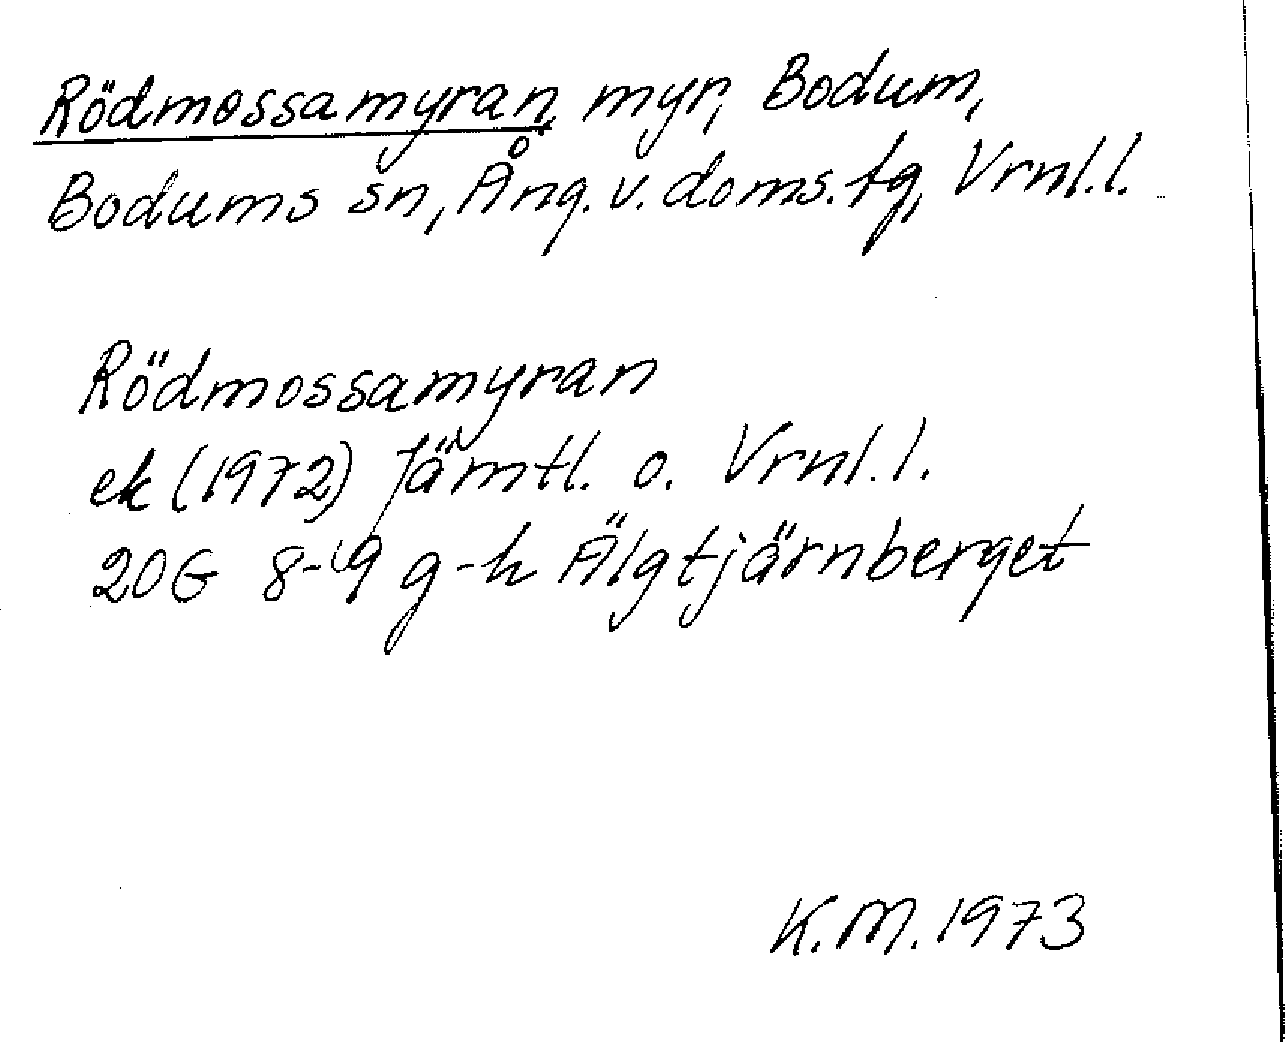 Rödmossamyran, myr, Bodum,
Bodums sn, Ång. v. doms. tg, Vrnl.l.
Rödmossamyran
ek (1972) Jämtl. o. Vrnl.l.
20G 8-9 g-h Älgtjärnberget
K.M. 1973